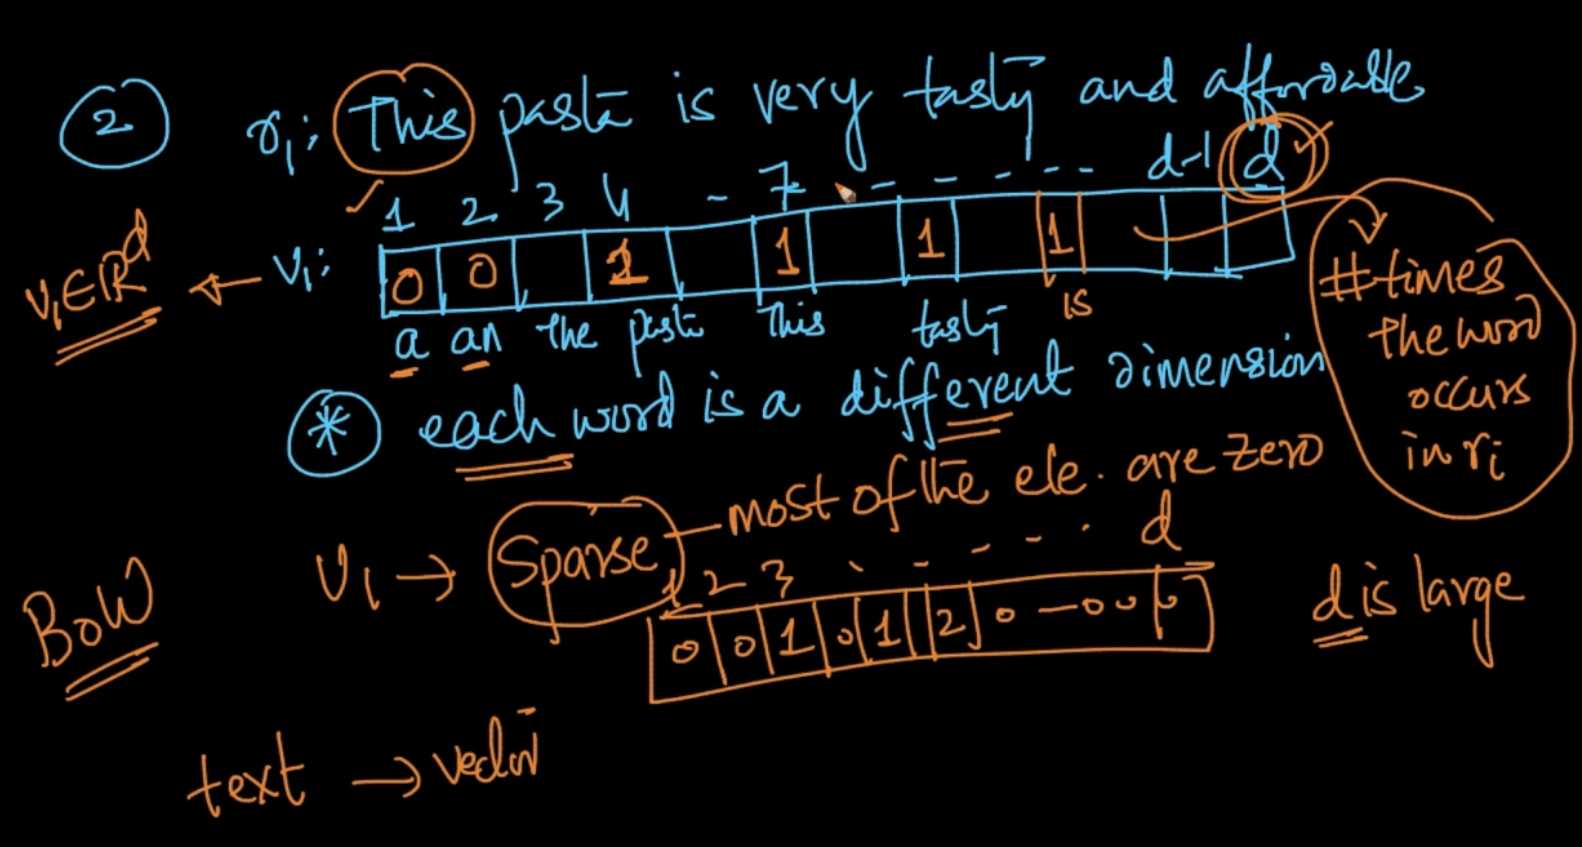 2 r₁: This pasta is very tasty and affordable
1 2 3 4 - 7 - - - - - d-1 d
v₁ ∈ ℝᵈ ← v₁: 0 0 1 1 1 1
a an the pasta This tasty is
#times
the word
occurs
in rᵢ
* each word is a different dimension
v₁ → Sparse — most of the ele. are zero
1 2 3 - - - - d
BoW
0 0 1 0 1 2 0 — 0 0 0
d is large
text → vector